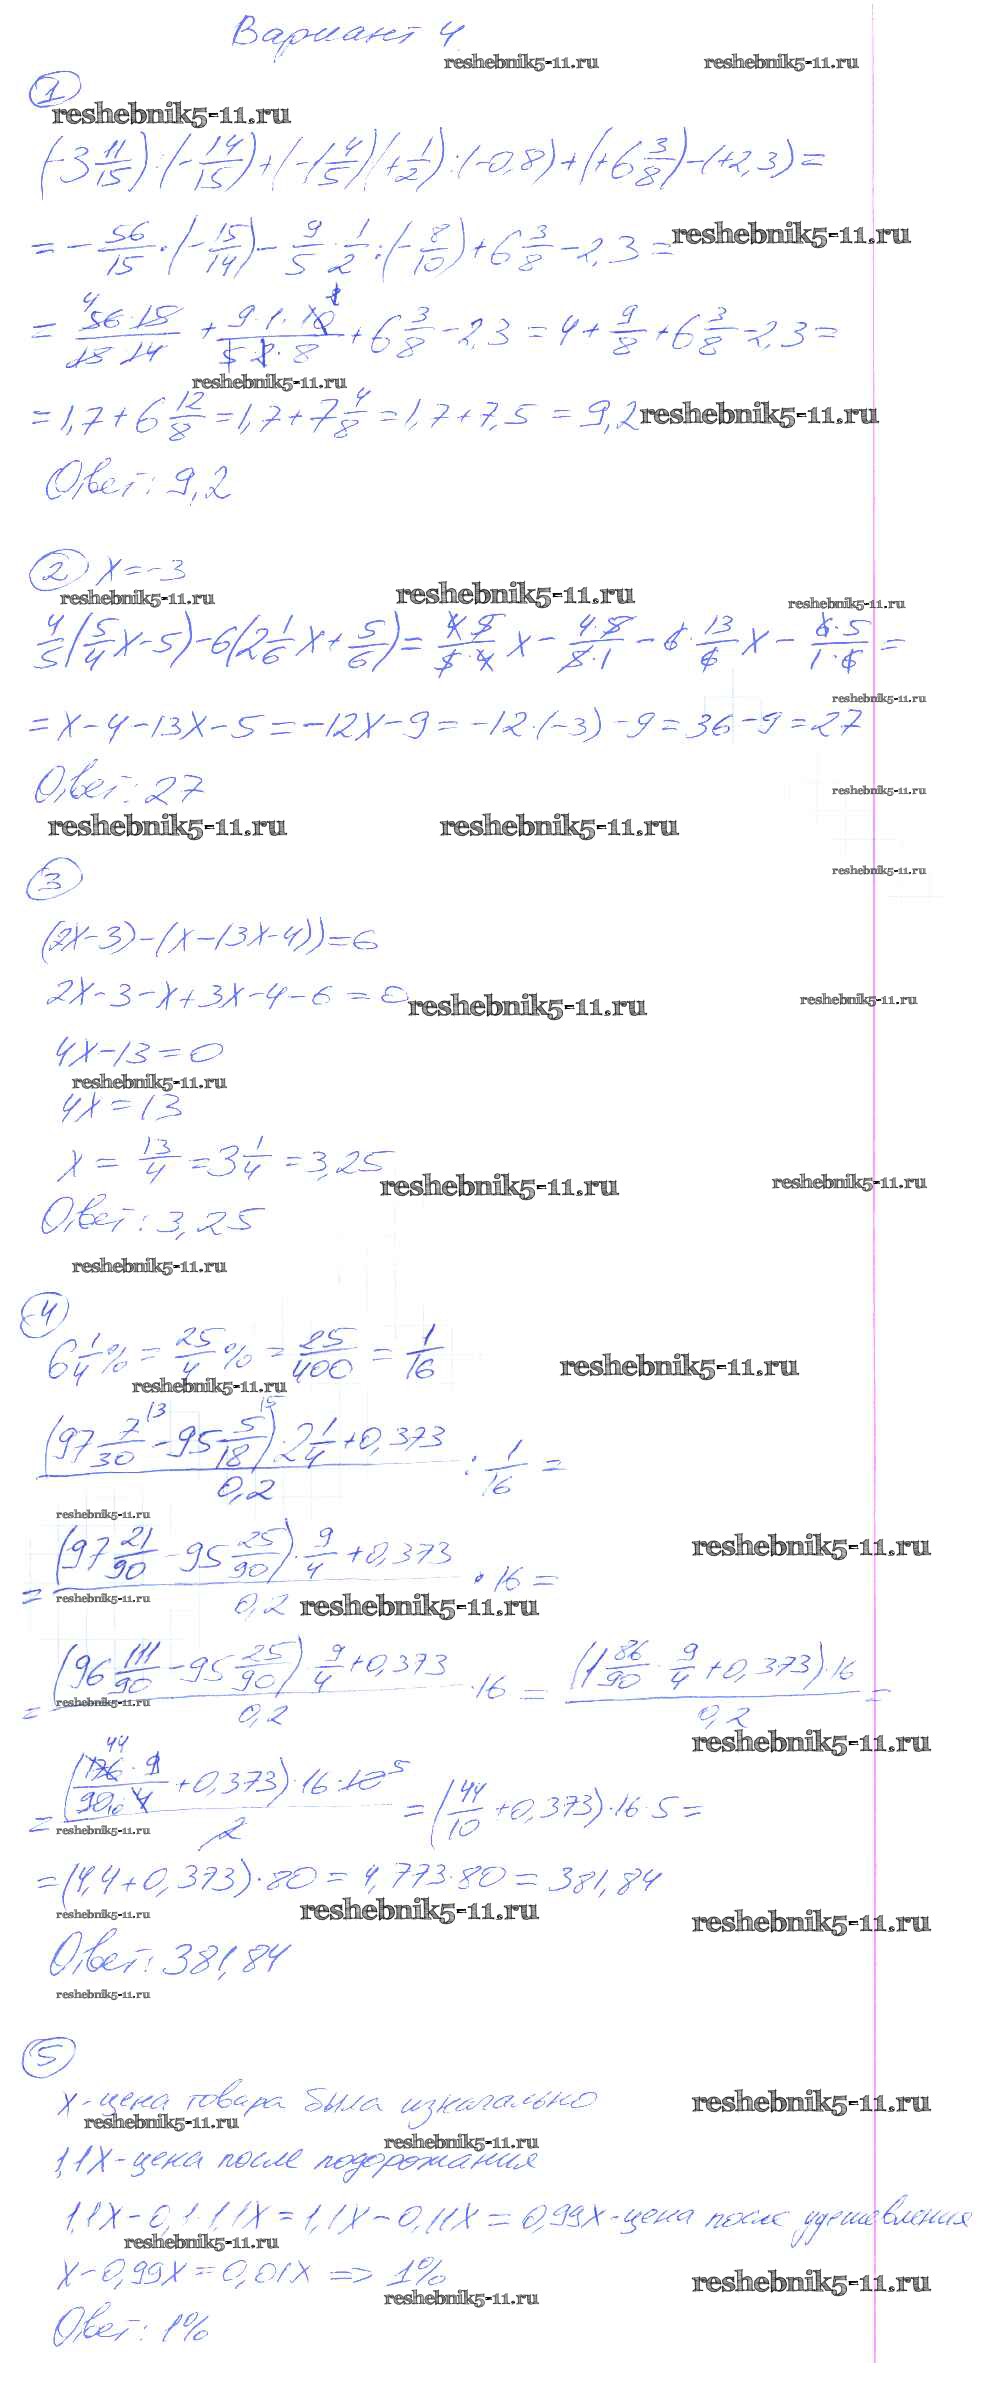 Вариант 4
reshebnik5-11.ru reshebnik5-11.ru
1
reshebnik5-11.ru
(-3 11/15) : (-14/15) + (-1 4/5)(+1/2) : (-0,8) + (+6 3/8) - (+2,3) =
= - 56/15 · (-15/14) - 9/5 · 1/2 : (-8/10) + 6 3/8 - 2,3 = reshebnik5-11.ru
= 56·15/15·14 + 9·1·10/5·2·8 + 6 3/8 - 2,3 = 4 + 9/8 + 6 3/8 - 2,3 =
reshebnik5-11.ru
= 1,7 + 6 12/8 = 1,7 + 7 4/8 = 1,7 + 7,5 = 9,2 reshebnik5-11.ru
Ответ: 9,2
2 x = -3
reshebnik5-11.ru reshebnik5-11.ru reshebnik5-11.ru
4/5(5/4 x - 5) - 6(2 1/6 x + 5/6) = 4·5/5·4 x - 4·5/5·1 - 6 · 13/6 x - 6·5/1·6 =
reshebnik5-11.ru
= x - 4 - 13x - 5 = -12x - 9 = -12·(-3) - 9 = 36 - 9 = 27
Ответ: 27 reshebnik5-11.ru
reshebnik5-11.ru reshebnik5-11.ru
3 reshebnik5-11.ru
(2x-3)-(x-(3x-4))=6
2x-3-x+3x-4-6=0 reshebnik5-11.ru reshebnik5-11.ru
4x-13=0
reshebnik5-11.ru
4x=13
x = 13/4 = 3 1/4 = 3,25 reshebnik5-11.ru reshebnik5-11.ru
Ответ: 3,25
reshebnik5-11.ru
4
6 1/4 % = 25/4 % = 25/400 = 1/16 reshebnik5-11.ru
reshebnik5-11.ru
(97 7/30 - 95 5/18) · 2 1/4 + 0,373 / 0,2 : 1/16 =
reshebnik5-11.ru
= (97 21/90 - 95 25/90) · 9/4 + 0,373 / 0,2 · 16 = reshebnik5-11.ru
reshebnik5-11.ru reshebnik5-11.ru
= (96 111/90 - 95 25/90) 9/4 + 0,373 / 0,2 · 16 = (1 86/90 · 9/4 + 0,373) · 16 / 0,2 =
reshebnik5-11.ru reshebnik5-11.ru
= (176·9/90·4 + 0,373) · 16 · 10 / 2 = (44/10 + 0,373) · 16 · 5 =
reshebnik5-11.ru
= (4,4 + 0,373) · 80 = 4,773 · 80 = 381,84
reshebnik5-11.ru reshebnik5-11.ru reshebnik5-11.ru
Ответ: 381,84
reshebnik5-11.ru
5
x - цена товара была изначально reshebnik5-11.ru
reshebnik5-11.ru reshebnik5-11.ru
1,1x - цена после подорожания
1,1x - 0,1·1,1x = 1,1x - 0,11x = 0,99x - цена после удешевления
reshebnik5-11.ru
x - 0,99x = 0,01x => 1% reshebnik5-11.ru
reshebnik5-11.ru
Ответ: 1%